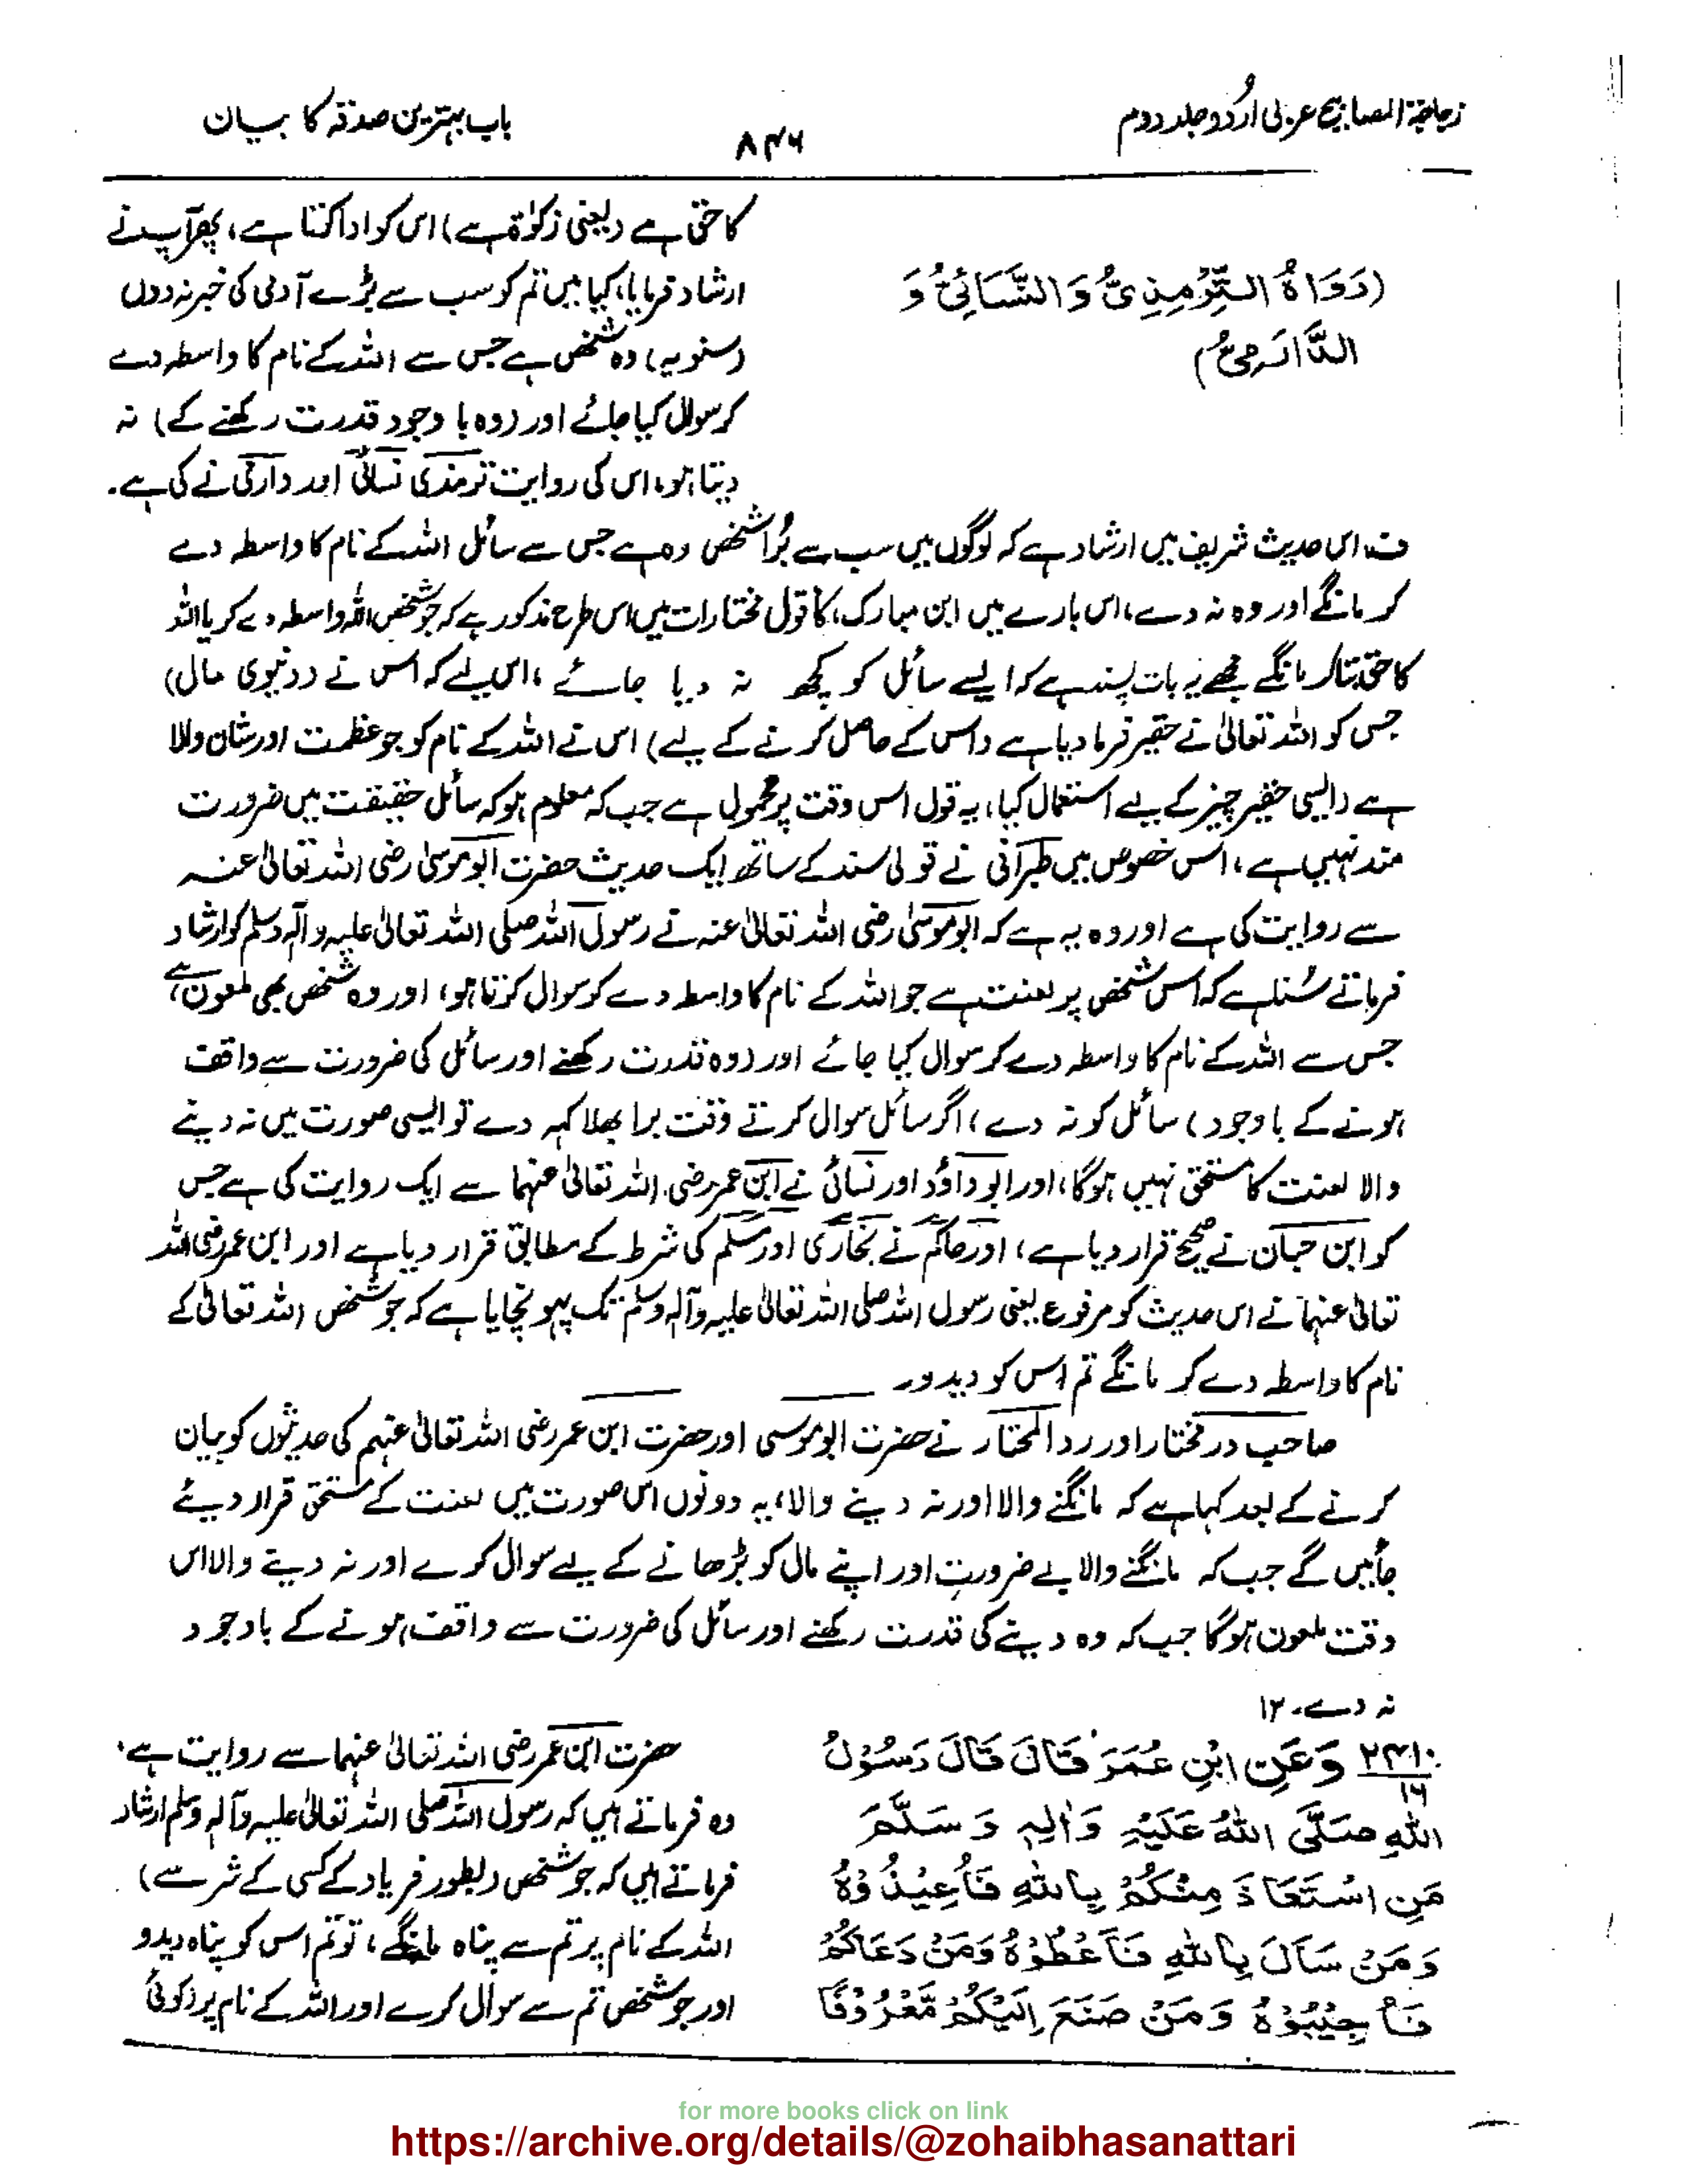 زجاجۃ المصابیح عربی اُردو جلد دوم
۸۴۶
باب بہترین صدقہ کا بیان
(رَوَاهُ التِّرْمِذِیُّ وَالنَّسَائِیُّ وَ
الدَّارَمِیُّ)
کا حق ہے (یعنی زکوٰۃ ہے) اس کو ادا کرتا ہے، پھر آپ نے
ارشاد فرمایا، کیا میں تم کو سب سے بڑے آدمی کی خبر نہ دوں
(سنو یہ) وہ شخص ہے جس سے اللہ کے نام کا واسطہ دے
کر سوال کیا جائے اور (وہ با وجود قدرت رکھنے کے) نہ
دیتا ہو، اس کی روایت ترمذی نسائی اور دارمی نے کی ہے۔
ف، اس حدیث شریف میں ارشاد ہے کہ لوگوں میں سب سے بُرا شخص وہ ہے جس سے سائل اللہ کے نام کا واسطہ دے
کر مانگے اور وہ نہ دے، اس بارے میں ابن مبارک، کا قول مختارات میں اس طرح مذکور ہے کہ جو شخص اللہ واسطہ دے کر یا اللہ
کا حق بتا کر مانگے مجھے یہ بات پسند ہے کہ ایسے سائل کو کچھ نہ دیا جائے، اس لیے کہ اس نے (دنیوی مال)
جس کو اللہ تعالیٰ نے حقیر فرما دیا ہے (اس کے حاصل کرنے کے لیے) اس نے اللہ کے نام کو جو عظمت اور شان والا
ہے (ایسی حقیر چیز کے لیے استعمال کیا، یہ قول اس وقت پر محمول ہے جب کہ معلوم ہو کہ سائل حقیقت میں ضرورت
مند نہیں ہے، اس خصوص میں طبرانی نے قولی سند کے ساتھ ایک حدیث حضرت ابو موسیٰ رضی اللہ تعالیٰ عنہ
سے روایت کی ہے اور وہ یہ ہے کہ ابو موسیٰ رضی اللہ تعالیٰ عنہ نے رسول اللہ صلی اللہ تعالیٰ علیہ وآلہ وسلم کو ارشاد
فرماتے سُنا ہے کہ اس شخص پر لعنت ہے جو اللہ کے نام کا واسطہ دے کو سوال کرتا ہو، اور وہ شخص بھی ملعون ہے،
جس سے اللہ کے نام کا واسطہ دے کر سوال کیا جائے اور (وہ قدرت رکھنے اور سائل کی ضرورت سے واقف
ہونے کے باوجود) سائل کو نہ دے، اگر سائل سوال کرتے وقت برا بھلا کہہ دے تو ایسی صورت میں نہ دینے
والا لعنت کا مستحق نہیں ہوگا، اور ابو داؤد اور نسائی نے ابن عمر رضی اللہ تعالیٰ عنہما سے ایک روایت کی ہے جس
کو ابن حبان نے صحیح قرار دیا ہے، اور حاکم نے بخاری اور مسلم کی شرط کے مطابق قرار دیا ہے اور ابن عمر رضی اللہ
تعالیٰ عنہما نے اس حدیث کو مرفوع یعنی رسول اللہ صلی اللہ تعالیٰ علیہ وآلہ وسلم تک پہونچایا ہے کہ جو شخص اللہ تعالیٰ کے
نام کا واسطہ دے کر مانگے تم اس کو دیدو۔
صاحب در مختار اور رد المحتار نے حضرت ابو موسی اور حضرت ابن عمر رضی اللہ تعالیٰ عنہم کی حدیثوں کو بیان
کرنے کے بعد کہا ہے کہ مانگنے والا اور نہ دینے والا، یہ دونوں اس صورت میں لعنت کے مستحق قرار دیئے
جائیں گے جب کہ مانگنے والا بے ضرورت اور اپنے مال کو بڑھانے کے لیے سوال کرے اور نہ دینے والا اس
وقت ملعون ہوگا جب کہ وہ دینے کی قدرت رکھنے اور سائل کی ضرورت سے واقف ہونے کے باوجود
نہ دے۔ ۱۲
۲۴۱۰/۱۶ وَعَنِ ابْنِ عُمَرَ قَالَ قَالَ رَسُوْلُ
اللهِ صَلَّى اللهُ عَلَيْهِ وَاٰلِهٖ وَسَلَّمَ
مَنِ اسْتَعَاذَ مِنْكُمْ بِاللهِ فَاَعِيْذُوْهُ
وَمَنْ سَاَلَ بِاللهِ فَاَعْطُوْهُ وَمَنْ دَعَاكُمْ
فَاَجِيْبُوْهُ وَمَنْ صَنَعَ اِلَيْكُمْ مَّعْرُوْفًا
حضرت ابن عمر رضی اللہ تعالیٰ عنہما سے روایت ہے،
وہ فرماتے ہیں کہ رسول اللہ صلی اللہ تعالیٰ علیہ وآلہ وسلم ارشاد
فرماتے ہیں کہ جو شخص (بطور فریاد کے کسی کے شر سے)
اللہ کے نام پر تم سے پناہ مانگے، تو تم اس کو پناہ دیدو
اور جو شخص تم سے سوال کرے اور اللہ کے نام پر (کوئی
for more books click on link
https://archive.org/details/@zohaibhasanattari